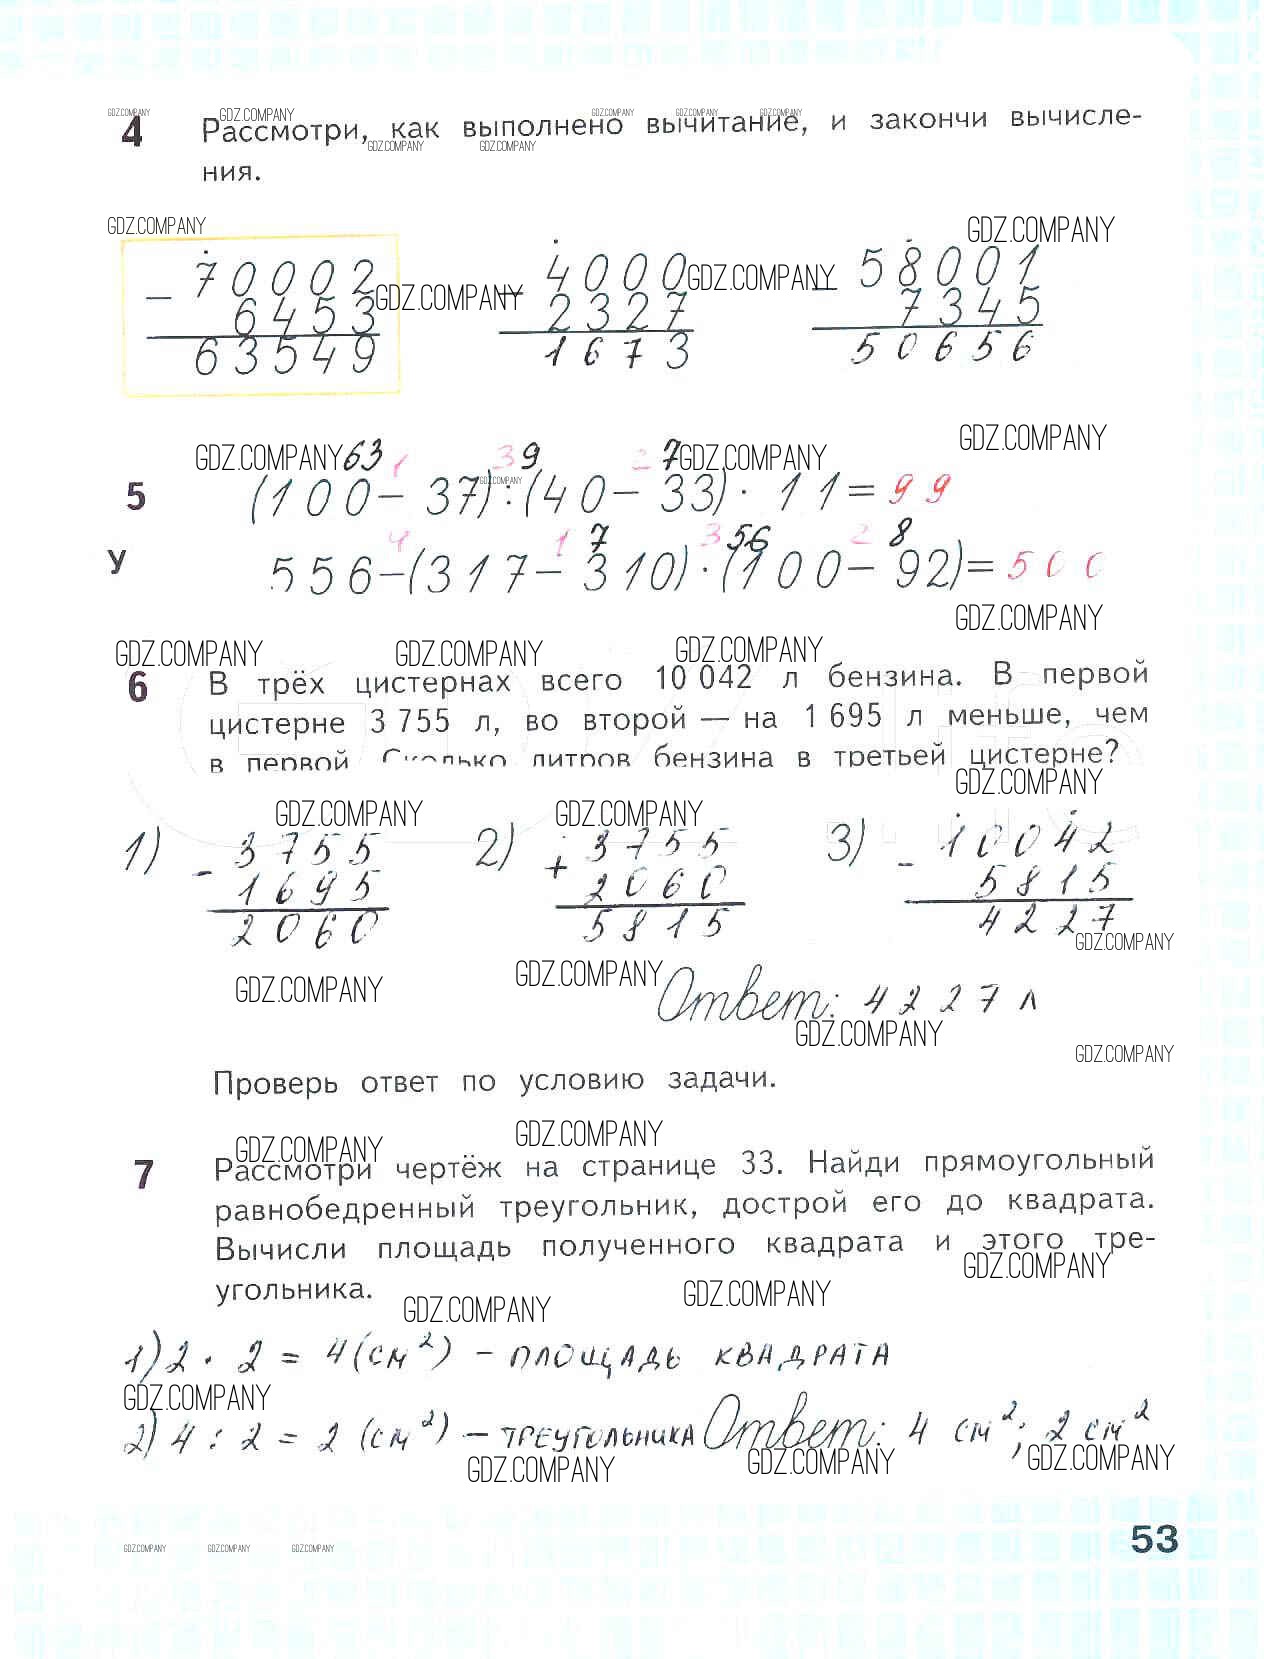 GDZ.COMPANY GDZ.COMPANY GDZ.COMPANY GDZ.COMPANY GDZ.COMPANY
4 Рассмотри, как выполнено вычитание, и закончи вычисле-
GDZ.COMPANY GDZ.COMPANY
ния.
GDZ.COMPANY GDZ.COMPANY
– 70002 – 4000 – 58001
GDZ.COMPANY GDZ.COMPANY
6453 2327 7345
63549 1673 50656
GDZ.COMPANY 63 1 3 9 2 7 GDZ.COMPANY GDZ.COMPANY
GDZ.COMPANY
5 (100 – 37) : (40 – 33) · 11 = 99
4 1 7 3 56 2 8
У 556 – (317 – 310) · (100 – 92) = 500
GDZ.COMPANY
GDZ.COMPANY GDZ.COMPANY GDZ.COMPANY
6 В трёх цистернах всего 10 042 л бензина. В первой
цистерне 3 755 л, во второй — на 1 695 л меньше, чем
в первой. Сколько литров бензина в третьей цистерне?
GDZ.COMPANY
GDZ.COMPANY GDZ.COMPANY
1) – 3755 2) + 3755 3) – 10042
1695 2060 5815
2060 5815 4227
GDZ.COMPANY
GDZ.COMPANY GDZ.COMPANY
Ответ: 4227 л
GDZ.COMPANY
GDZ.COMPANY
Проверь ответ по условию задачи.
GDZ.COMPANY GDZ.COMPANY
7 Рассмотри чертёж на странице 33. Найди прямоугольный
равнобедренный треугольник, дострой его до квадрата.
Вычисли площадь полученного квадрата и этого тре-
GDZ.COMPANY
угольника.
GDZ.COMPANY GDZ.COMPANY
1) 2 · 2 = 4 (см²) – площадь квадрата
GDZ.COMPANY
2) 4 : 2 = 2 (см²) – треугольника Ответ: 4 см²; 2 см²
GDZ.COMPANY GDZ.COMPANY GDZ.COMPANY
53
GDZ.COMPANY GDZ.COMPANY GDZ.COMPANY